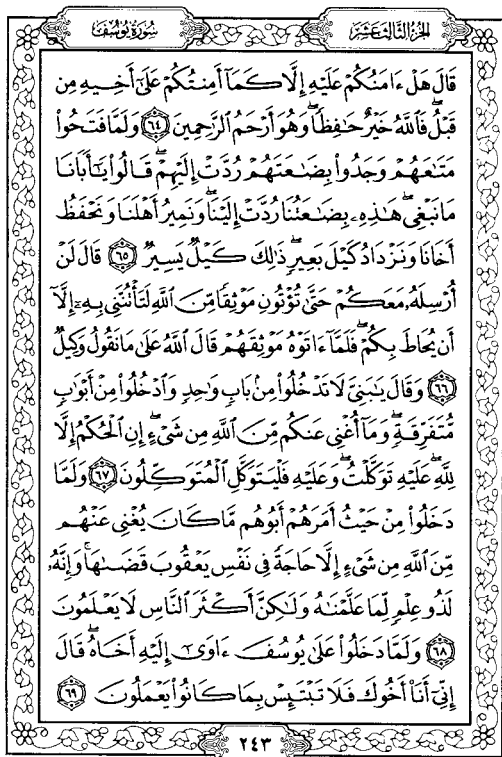 الجزء الثالث عشر
سورة يوسف
قَالَ هَلْ ءَامَنُكُمْ عَلَيْهِ إِلَّا كَمَآ أَمِنتُكُمْ عَلَىٰٓ أَخِيهِ مِن
قَبْلُ فَٱللَّهُ خَيْرٌ حَٰفِظًا وَهُوَ أَرْحَمُ ٱلرَّٰحِمِينَ ٦٤ وَلَمَّا فَتَحُوا۟
مَتَٰعَهُمْ وَجَدُوا۟ بِضَٰعَتَهُمْ رُدَّتْ إِلَيْهِمْ قَالُوا۟ يَٰٓأَبَانَا
مَا نَبْغِى هَٰذِهِۦ بِضَٰعَتُنَا رُدَّتْ إِلَيْنَا وَنَمِيرُ أَهْلَنَا وَنَحْفَظُ
أَخَانَا وَنَزْدَادُ كَيْلَ بَعِيرٍ ذَٰلِكَ كَيْلٌ يَسِيرٌ ٦٥ قَالَ لَنْ
أُرْسِلَهُۥ مَعَكُمْ حَتَّىٰ تُؤْتُونِ مَوْثِقًا مِّنَ ٱللَّهِ لَتَأْتُنَّنِى بِهِۦٓ إِلَّآ
أَن يُحَاطَ بِكُمْ فَلَمَّآ ءَاتَوْهُ مَوْثِقَهُمْ قَالَ ٱللَّهُ عَلَىٰ مَا نَقُولُ وَكِيلٌ
٦٦ وَقَالَ يَٰبَنِىَّ لَا تَدْخُلُوا۟ مِنۢ بَابٍ وَٰحِدٍ وَٱدْخُلُوا۟ مِنْ أَبْوَٰبٍ
مُّتَفَرِّقَةٍ وَمَآ أُغْنِى عَنكُم مِّنَ ٱللَّهِ مِن شَىْءٍ إِنِ ٱلْحُكْمُ إِلَّا
لِلَّهِ عَلَيْهِ تَوَكَّلْتُ وَعَلَيْهِ فَلْيَتَوَكَّلِ ٱلْمُتَوَكِّلُونَ ٦٧ وَلَمَّا
دَخَلُوا۟ مِنْ حَيْثُ أَمَرَهُمْ أَبُوهُم مَّا كَانَ يُغْنِى عَنْهُم
مِّنَ ٱللَّهِ مِن شَىْءٍ إِلَّا حَاجَةً فِى نَفْسِ يَعْقُوبَ قَضَىٰهَا وَإِنَّهُۥ
لَذُو عِلْمٍ لِّمَا عَلَّمْنَٰهُ وَلَٰكِنَّ أَكْثَرَ ٱلنَّاسِ لَا يَعْلَمُونَ
٦٨ وَلَمَّا دَخَلُوا۟ عَلَىٰ يُوسُفَ ءَاوَىٰٓ إِلَيْهِ أَخَاهُ قَالَ
إِنِّىٓ أَنَا۠ أَخُوكَ فَلَا تَبْتَئِسْ بِمَا كَانُوا۟ يَعْمَلُونَ ٦٩
٢٤٣